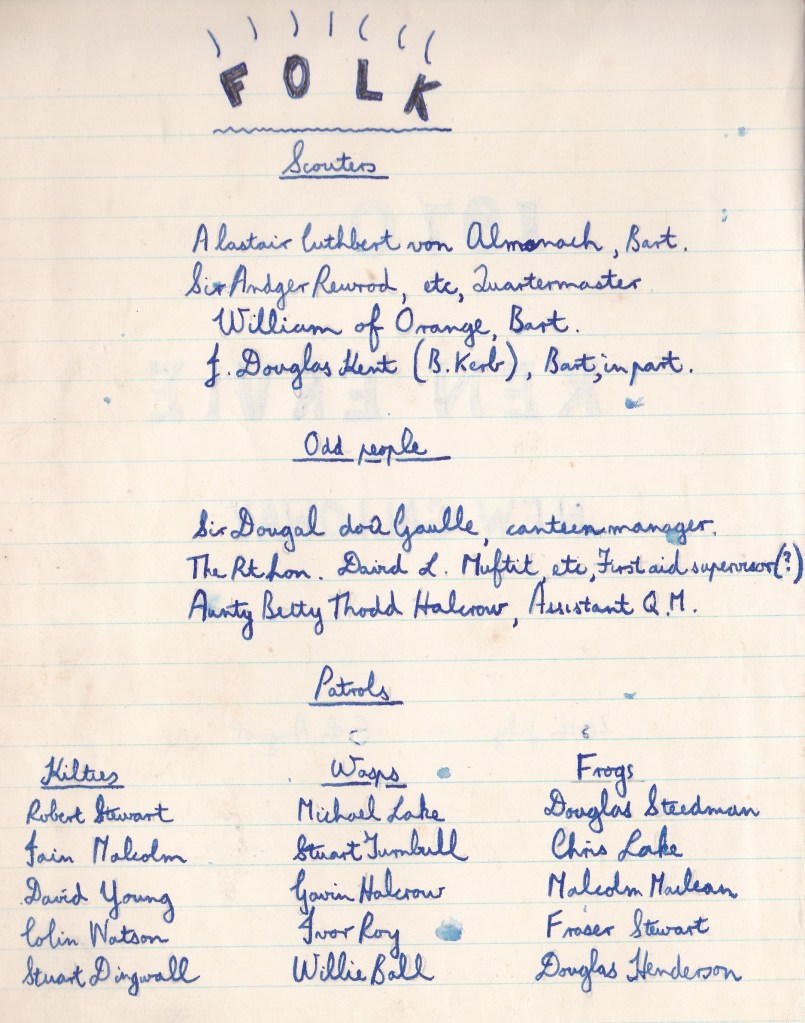 FOLK
Scouters
Alastair Cuthbert von Almanach, Bart.
Sir Andger Rewrod, etc, Quartermaster
William of Orange, Bart.
J. Douglas Kent (B. Kerb), Bart, in part.
Odd people
Sir Dougal doa Gaulle, canteen manager.
The Rt. hon. David L. Muftit, etc, First aid supervisor(?)
Aunty Betty Thodd Halcrow, Assistant Q.M.
Patrols
Kilties Wasps Frogs
Robert Stewart Michael Lake Douglas Steedman
Iain Malcolm Stuart Turnbull Chris Lake
David Young Gavin Halcrow Malcolm Maclean
Colin Watson Ivor Roy Fraser Stewart
Stuart Dingwall Willie Ball Douglas Henderson